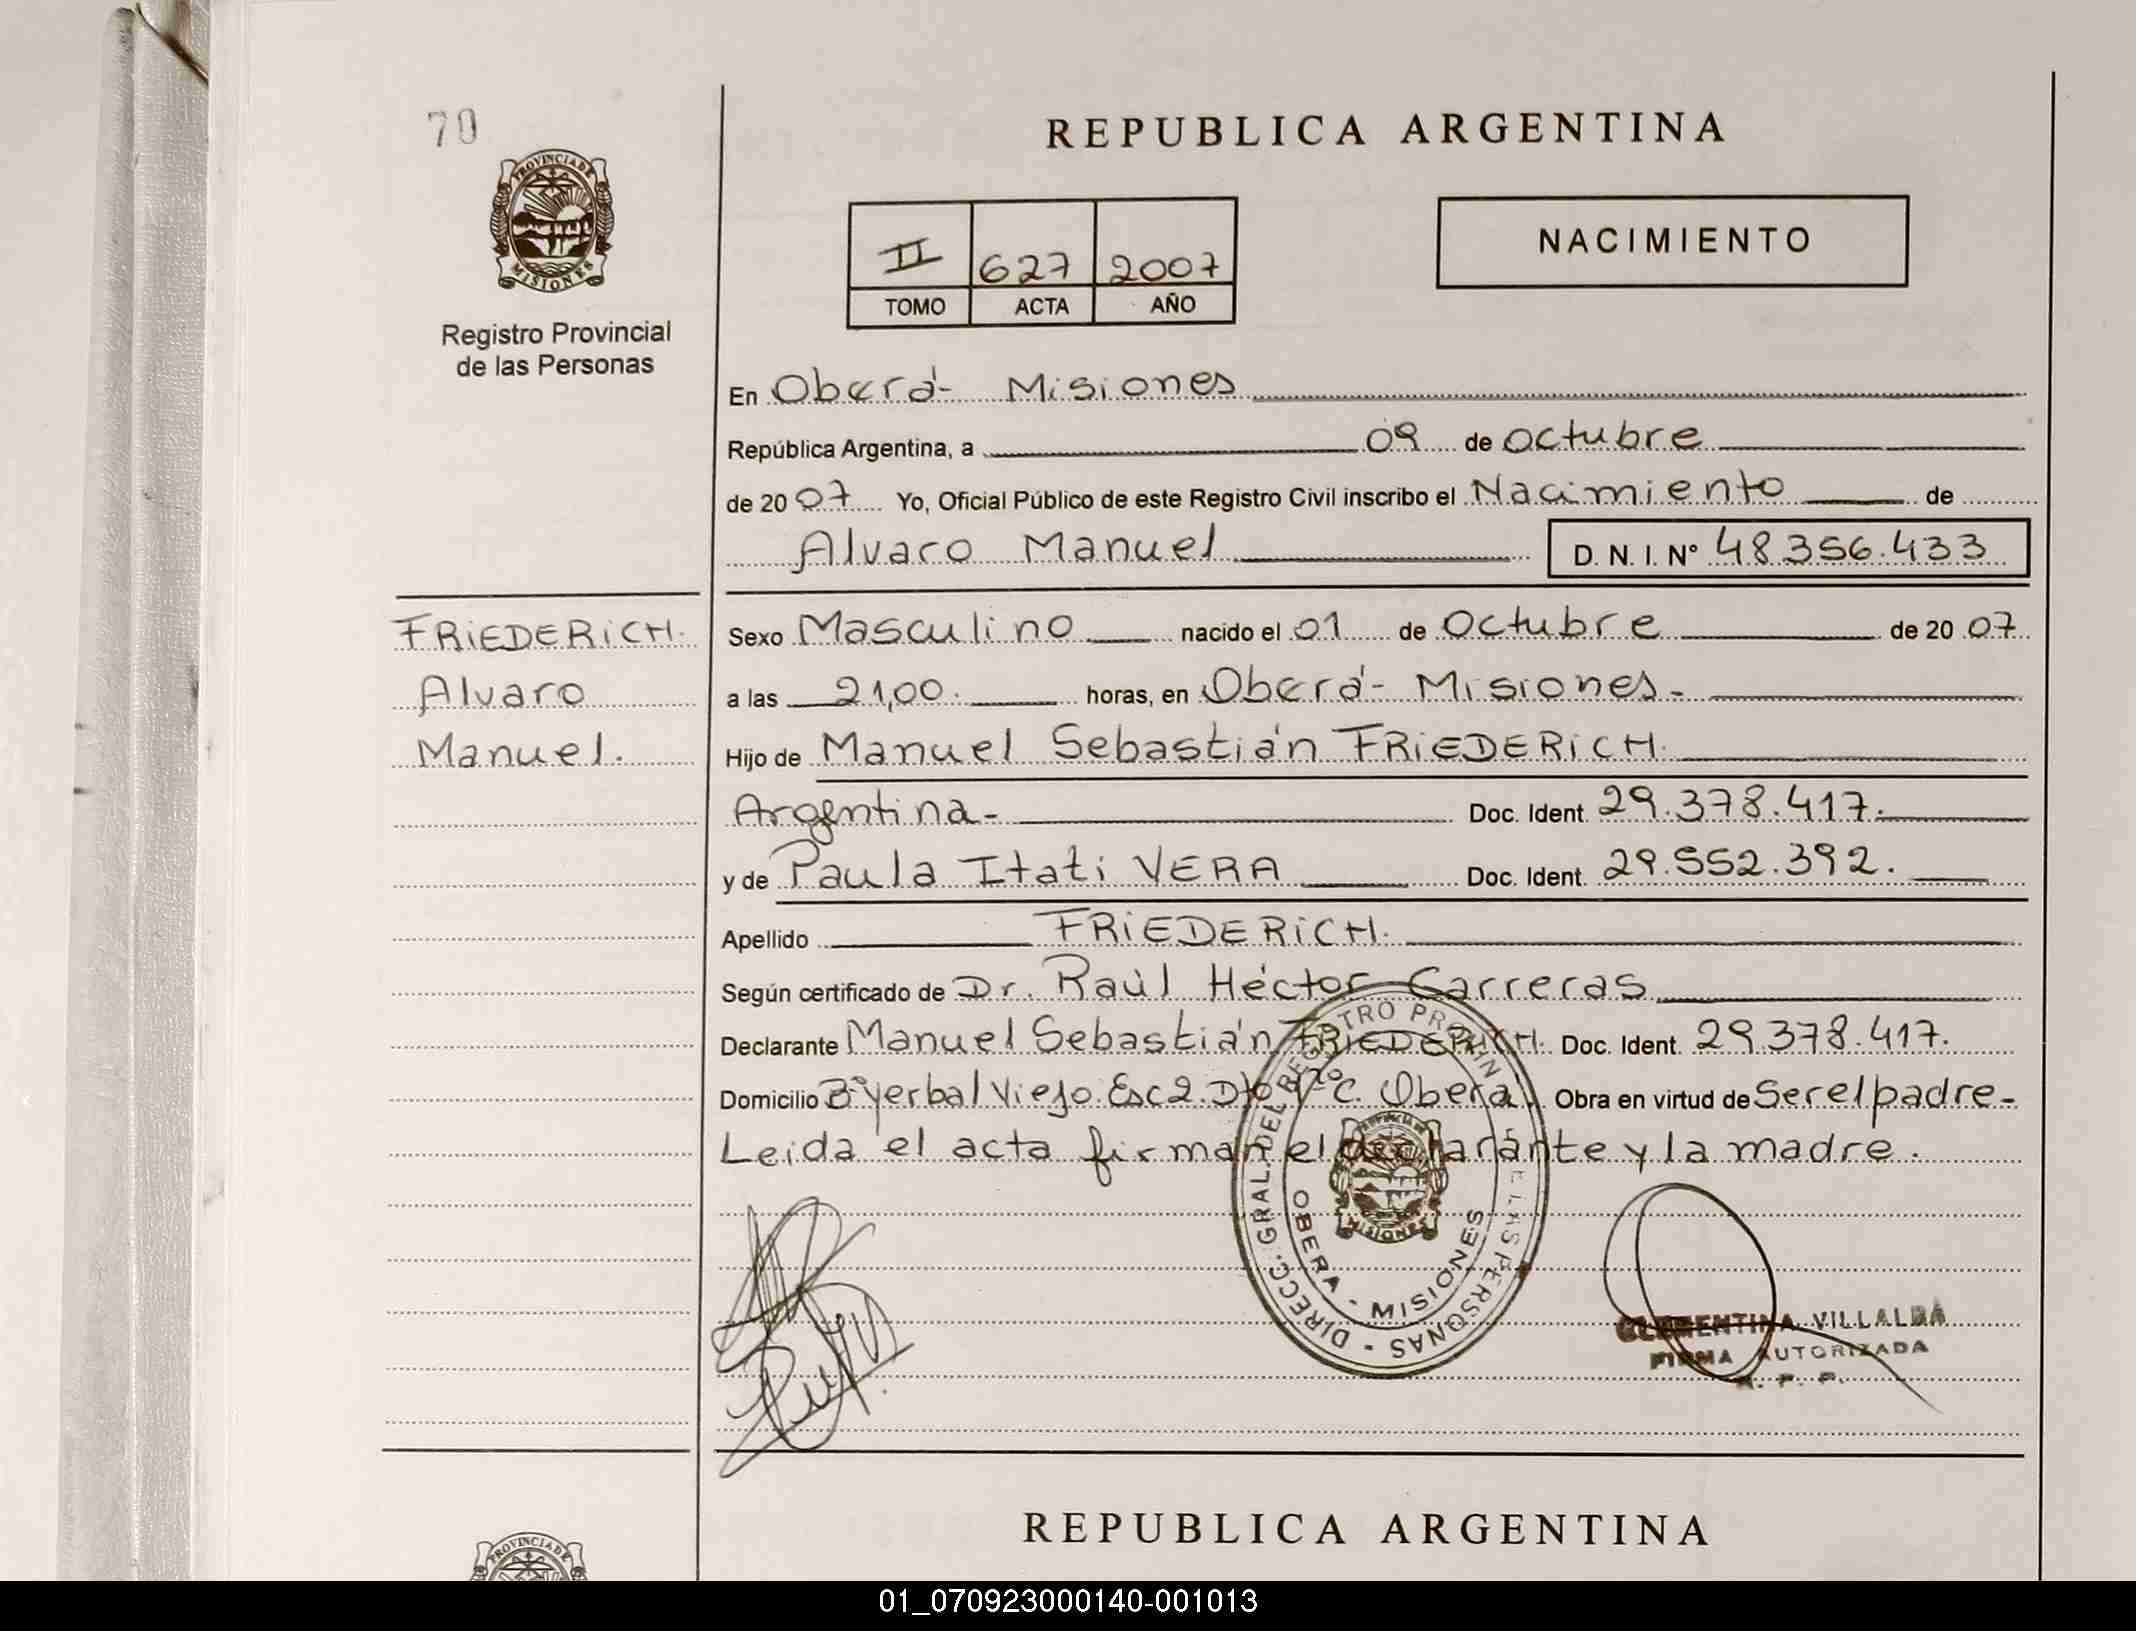 70
REPUBLICA ARGENTINA
PROVINCIA DE
MISIONES
Registro Provincial
de las Personas
II 627 2007
TOMO ACTA AÑO
NACIMIENTO
En Oberá- Misiones
República Argentina, a 09 de Octubre
de 20 07 Yo, Oficial Público de este Registro Civil inscribo el Nacimiento de
Alvaro Manuel D. N. I. N° 48.356.433
FRIEDERICH.
Alvaro
Manuel.
Sexo Masculino nacido el 01 de Octubre de 20 07
a las 21,00. horas, en Oberá- Misiones-
Hijo de Manuel Sebastián FRIEDERICH.
Argentina- Doc. Ident. 29.378.417.
y de Paula Itati VERA Doc. Ident. 29.552.392.
Apellido FRIEDERICH.
Según certificado de Dr. Raúl Héctor Carreras
Declarante Manuel Sebastián FRIEDERICH. Doc. Ident. 29.378.417.
Domicilio B° Yerbal Viejo. Esc 2. Dto C. Oberá. Obra en virtud de Ser el padre-
Leida el acta firman el declarante y la madre.
DIRECC. GRAL. DEL REGISTRO PROVIN LAS PERSONAS -
OBERA - MISIONES
MISIONES
CLEMENTINA VILLALBA
FIRMA AUTORIZADA
REPUBLICA ARGENTINA
PROVINCIA DE
01_070923000140-001013